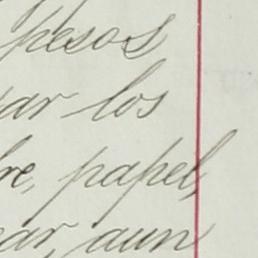 pesos
ar los
re, papel,
ar, aun